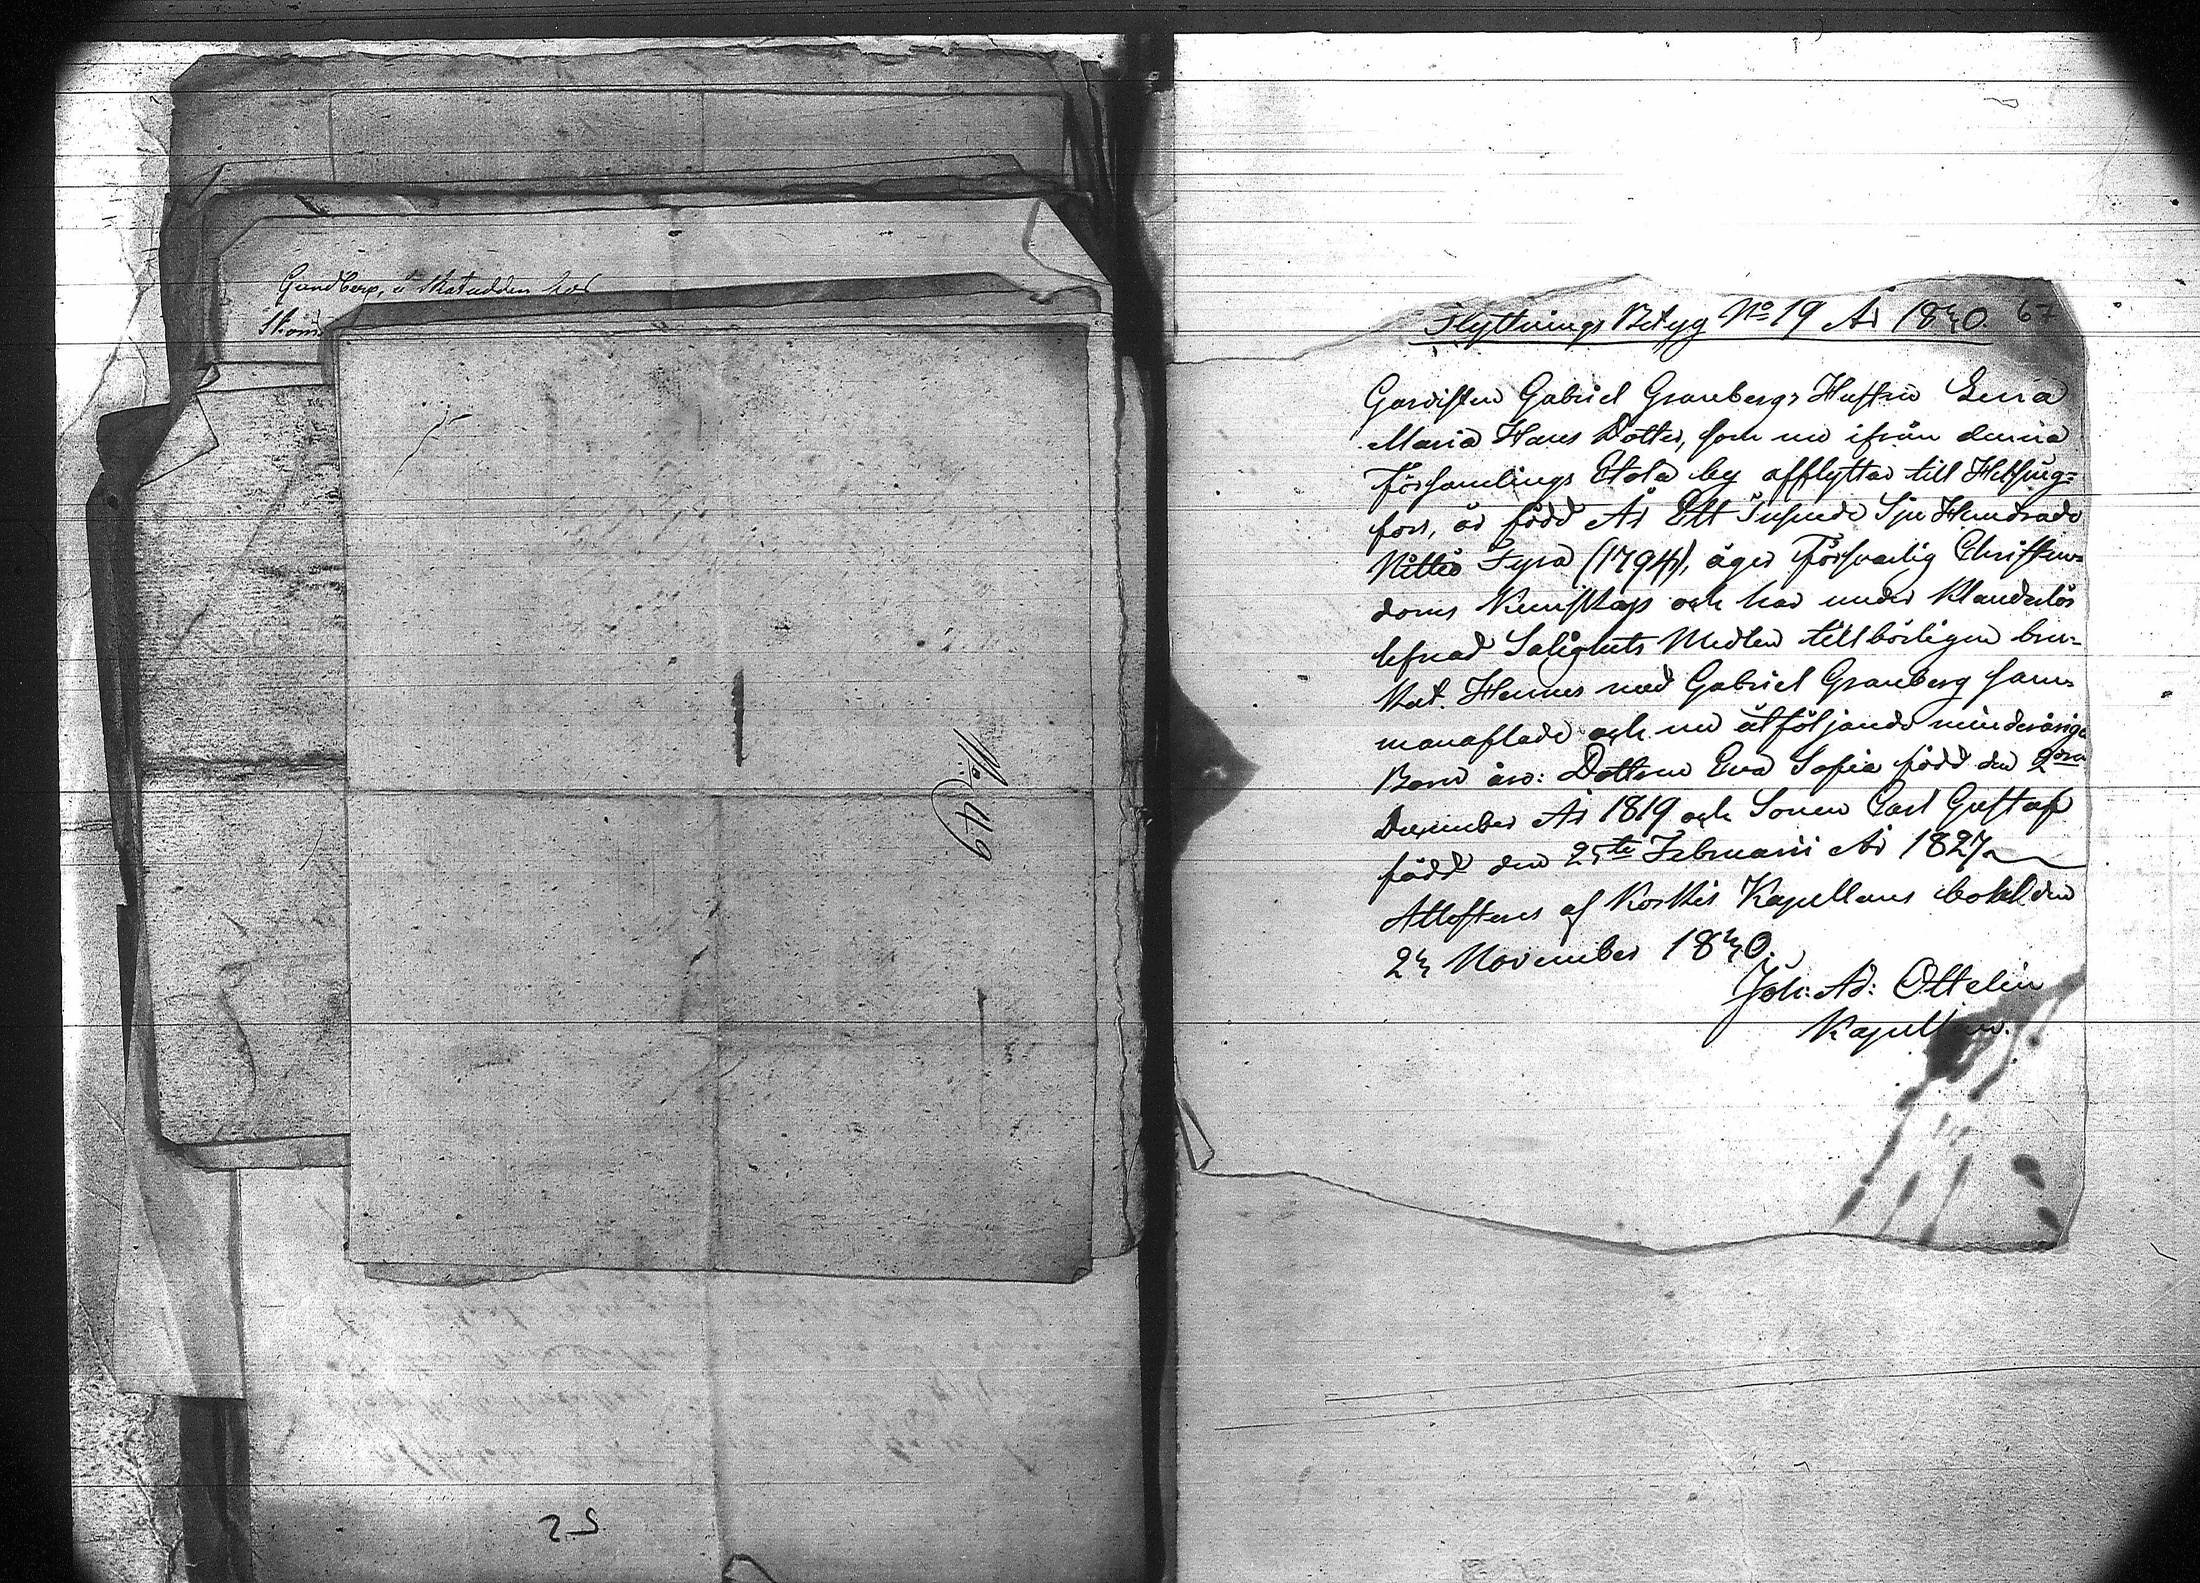 Grundberg, å Skatudden hos
N:o 49
Flyttnings Betyg No 19 År 1840. 67
Gardisten Gabriel Granbergs Hustru Lena
Maria Hans Dotter, som nu ifrån denna
Församlings Etola by afflyttar till Helsing=
fors, är född År Ett Tusende Sju Hundrade
Nittio Fyra (1794), äger Försvarlig Christen-
doms Kunskap och har under klanderlös
lefnad Salighets Medlen tillbörligen bru-
kat. Hennes med Gabriel Granberg sam-
manaflade och nu åtföljande minderåriga
Barn äro: Dottren Eva Sofia född den 2dra
December År 1819 och Sonen Carl Gustaf
född den 25te Februarii År 1827
Attesteras af Koskis Kapellans bohl den
24 November 1840.
Joh: Ad: Ottelin
Kapellan.